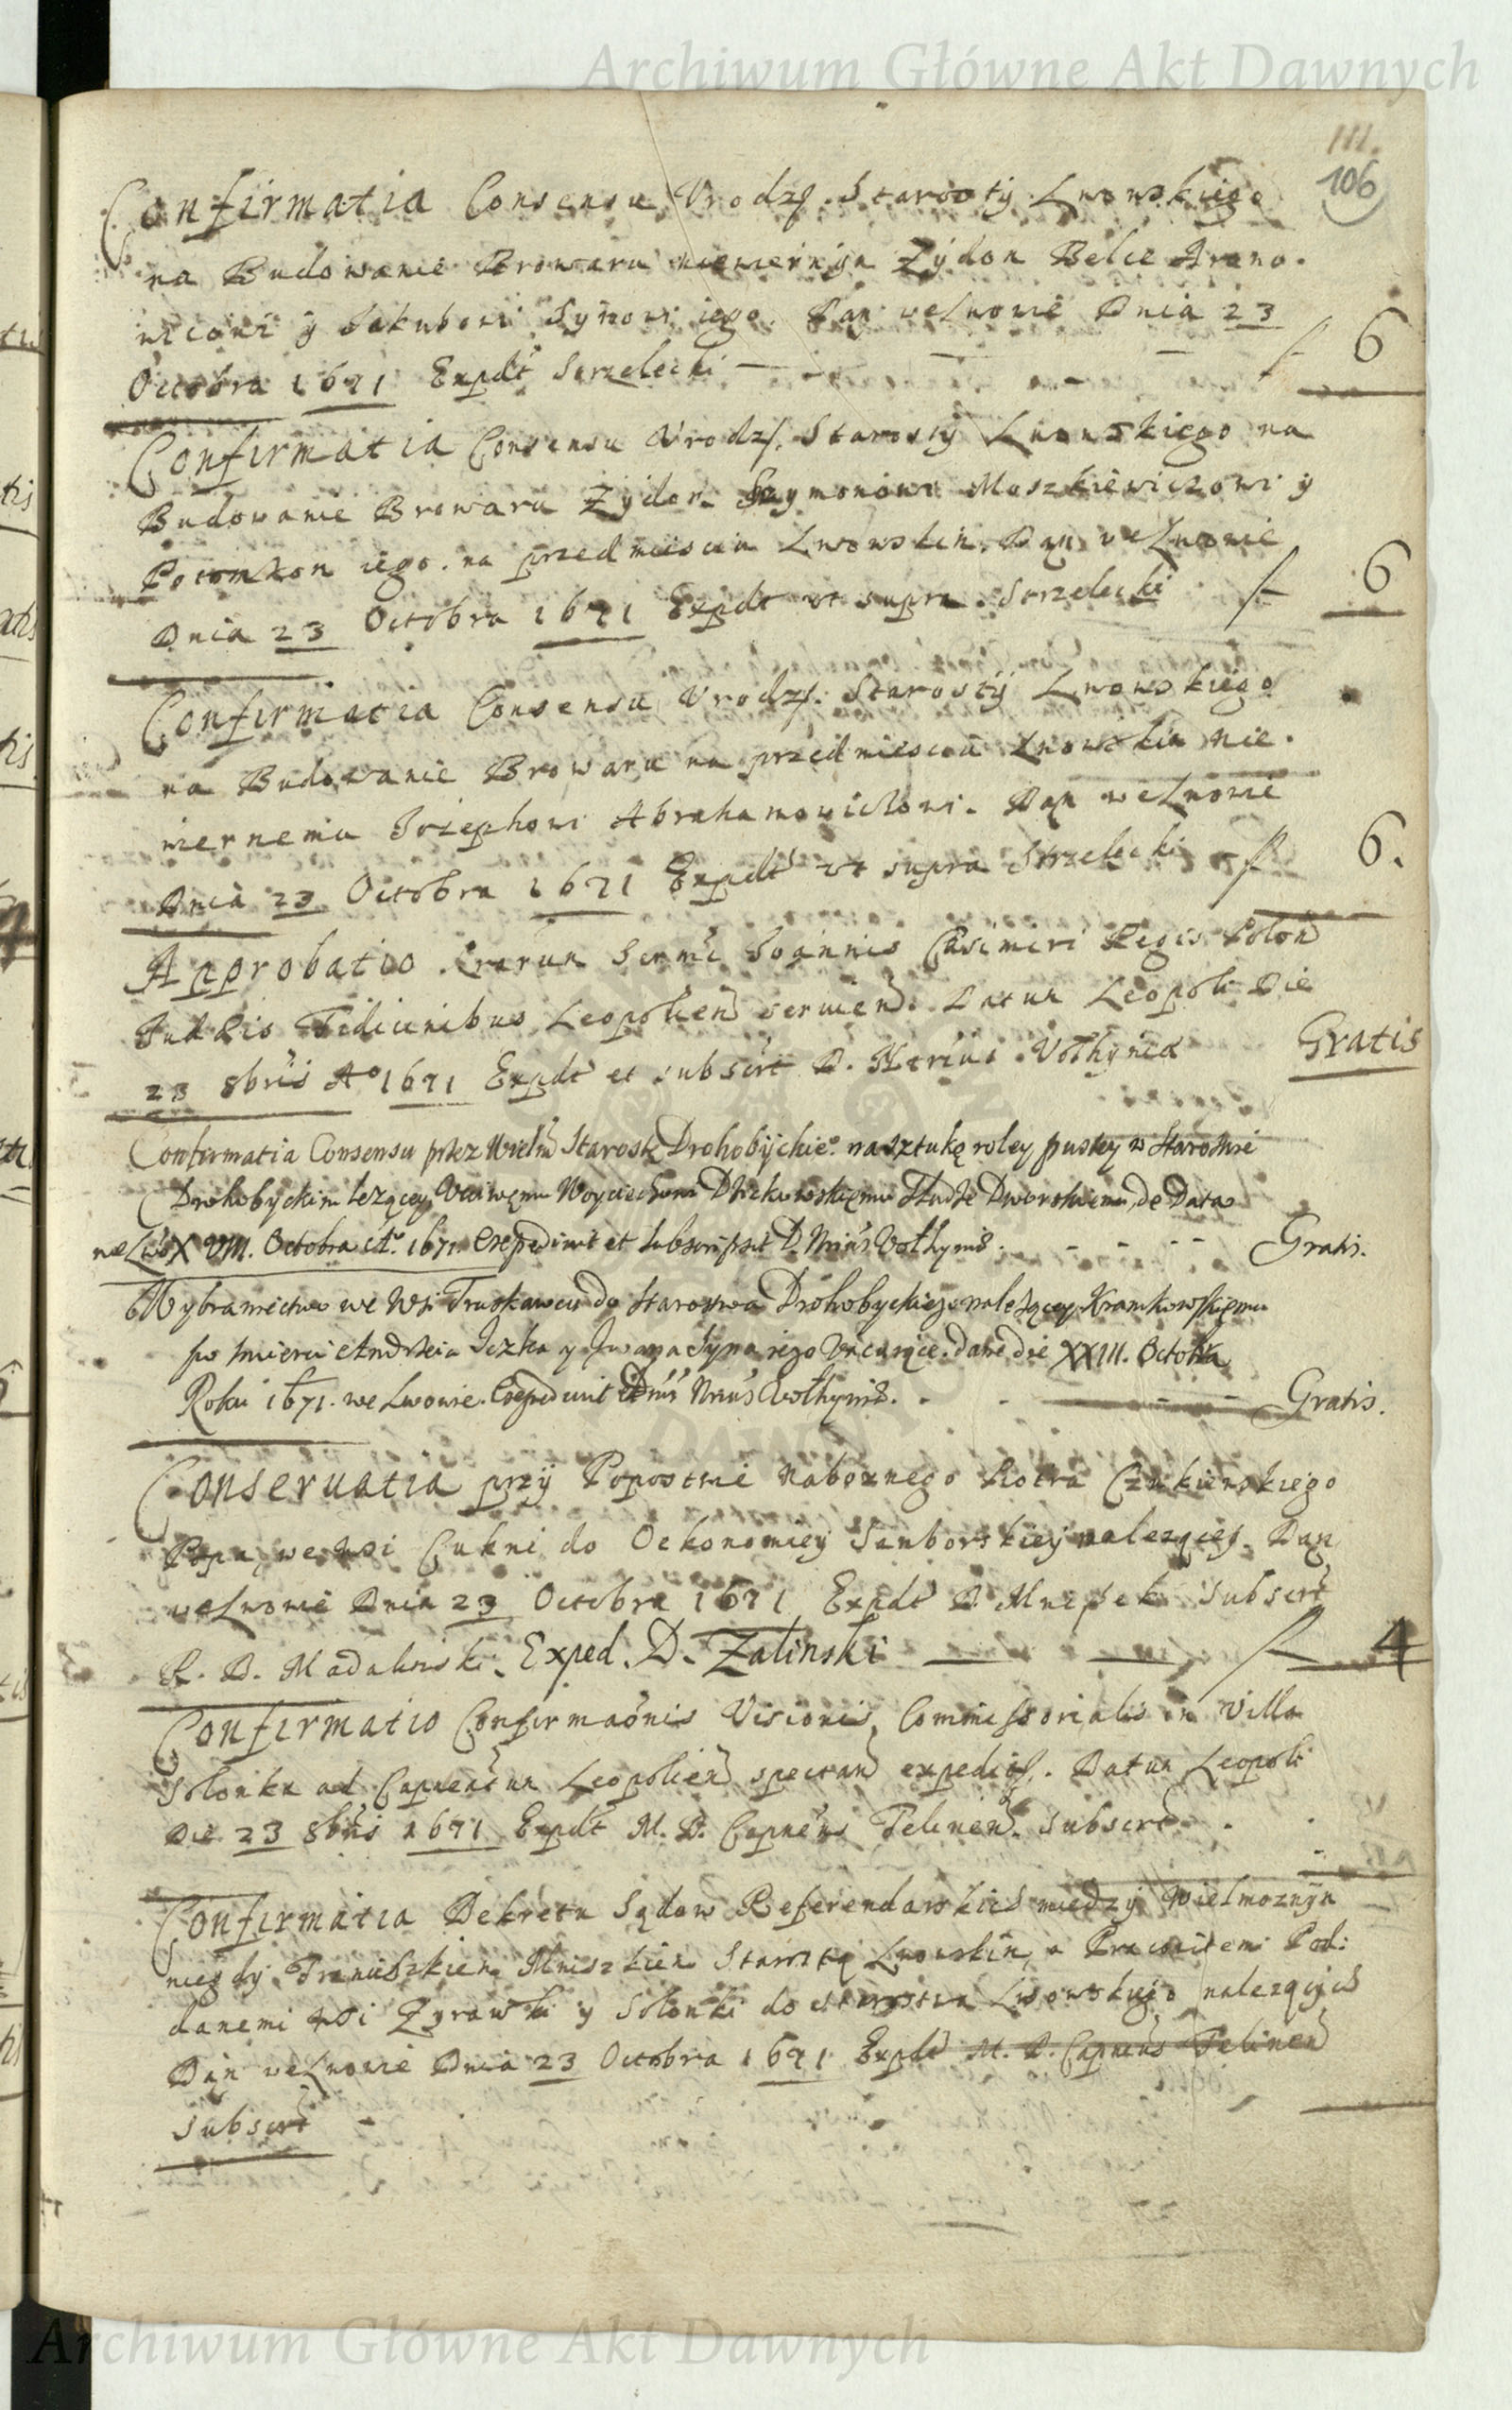 Archiwum Główne Akt Dawnych
111.
106
Confirmatia Consensu Vrodz. Starosty Lwowskiego
na Budowanie Browaru niewiernym Zydom Belce Arono-
wicowi y Jakubowi Synowi iego. Dan we Lwowie Dnia 23
Octobra 1671 Expdt Strzelecki — — — f 6
Confirmatia Consensu Vrodz. Starosty Lwowskiego na
Budowanie Browaru Zydom Szymonowi Moszkiewiczowi y
Potomkom iego na przedmiesciu Lwowskim. Dan we Lwowie
Dnia 23 Octobra 1671 Expdt vt supra Strzelecki f 6
Confirmatia Consensu Vrodz. Starosty Lwowskiego
na Budowanie Browaru na przedmiesciu Lwowskim nie-
wiernemu Jozephowi Abrahamowiczowi. Dan we Lwowie
Dnia 23 Octobra 1671 Expdt vt supra Strzelecki f 6.
Approbatio Lrarum Sermi Joannis Casimiri Regis Polon
Judaeis Fidicinibus Leopolien servien. Datum Leopoli Die
23 8bris Ao 1671 Expdt et subscrt D. Nrius Volhyniae Gratis
Confirmatia Consensu przez Wielm Starostę Drohobyckieo na sztukę roley pustey w Starostwie
Drohobyckim lezącey Vczciwemu Woyciechowi Dzikowskiemu Słudze Dworskiemu, de Data
we Lwo XVIII. Octobra Ao. 1671. Expedivit et subscripsit D. Nrius Volhyniae. - - - - Gratis.
Wybraniectwo we Wsi Truskawcu do Starostwa Drohobyckiego należącey Kramkowskiemu
po smierci Andrzeia Iczka y Iwana Syna iego Vacuiące. dane die XXIII. Octobra
Roku 1671. we Lwowie. Expedivit Dnus Nrius Volhyniae. - - Gratis.
Conseruatia przy Popostwie Naboznego Piotra Czukiewskiego
Popa, we wsi Cukwi do Oekonomiey Samborskiey nalezącey. Dan
we Lwowie Dnia 23 Octobra 1671 Expdt D. Mniszek Subscrt
R. D. Madalinski. Exped. D. Zalinski — — f 4
Confirmatio Confirmaonis Visionis, Commissorialis in Villa
Solonka ad Capneatum Leopolien spectan expedit. Datum Leopoli
Die 23 8bris 1671 Expdt M. D. Capneus Telinen. Subscrt
Confirmatia Dekretu Sądow Referendarskich między Wielmoznym
niegdy Franciszkiem Mniszkiem Starostą Lwowskim, a Pracowitemi Pod-
danemi wsi Zyrawki y Solonki do starostwa Lwowskiego nalezących
Dan we Lwowie Dnia 23 Octobra 1671 Expdt M. D. Capneus Telinen
Subscrt -
Archiwum Główne Akt Dawnych